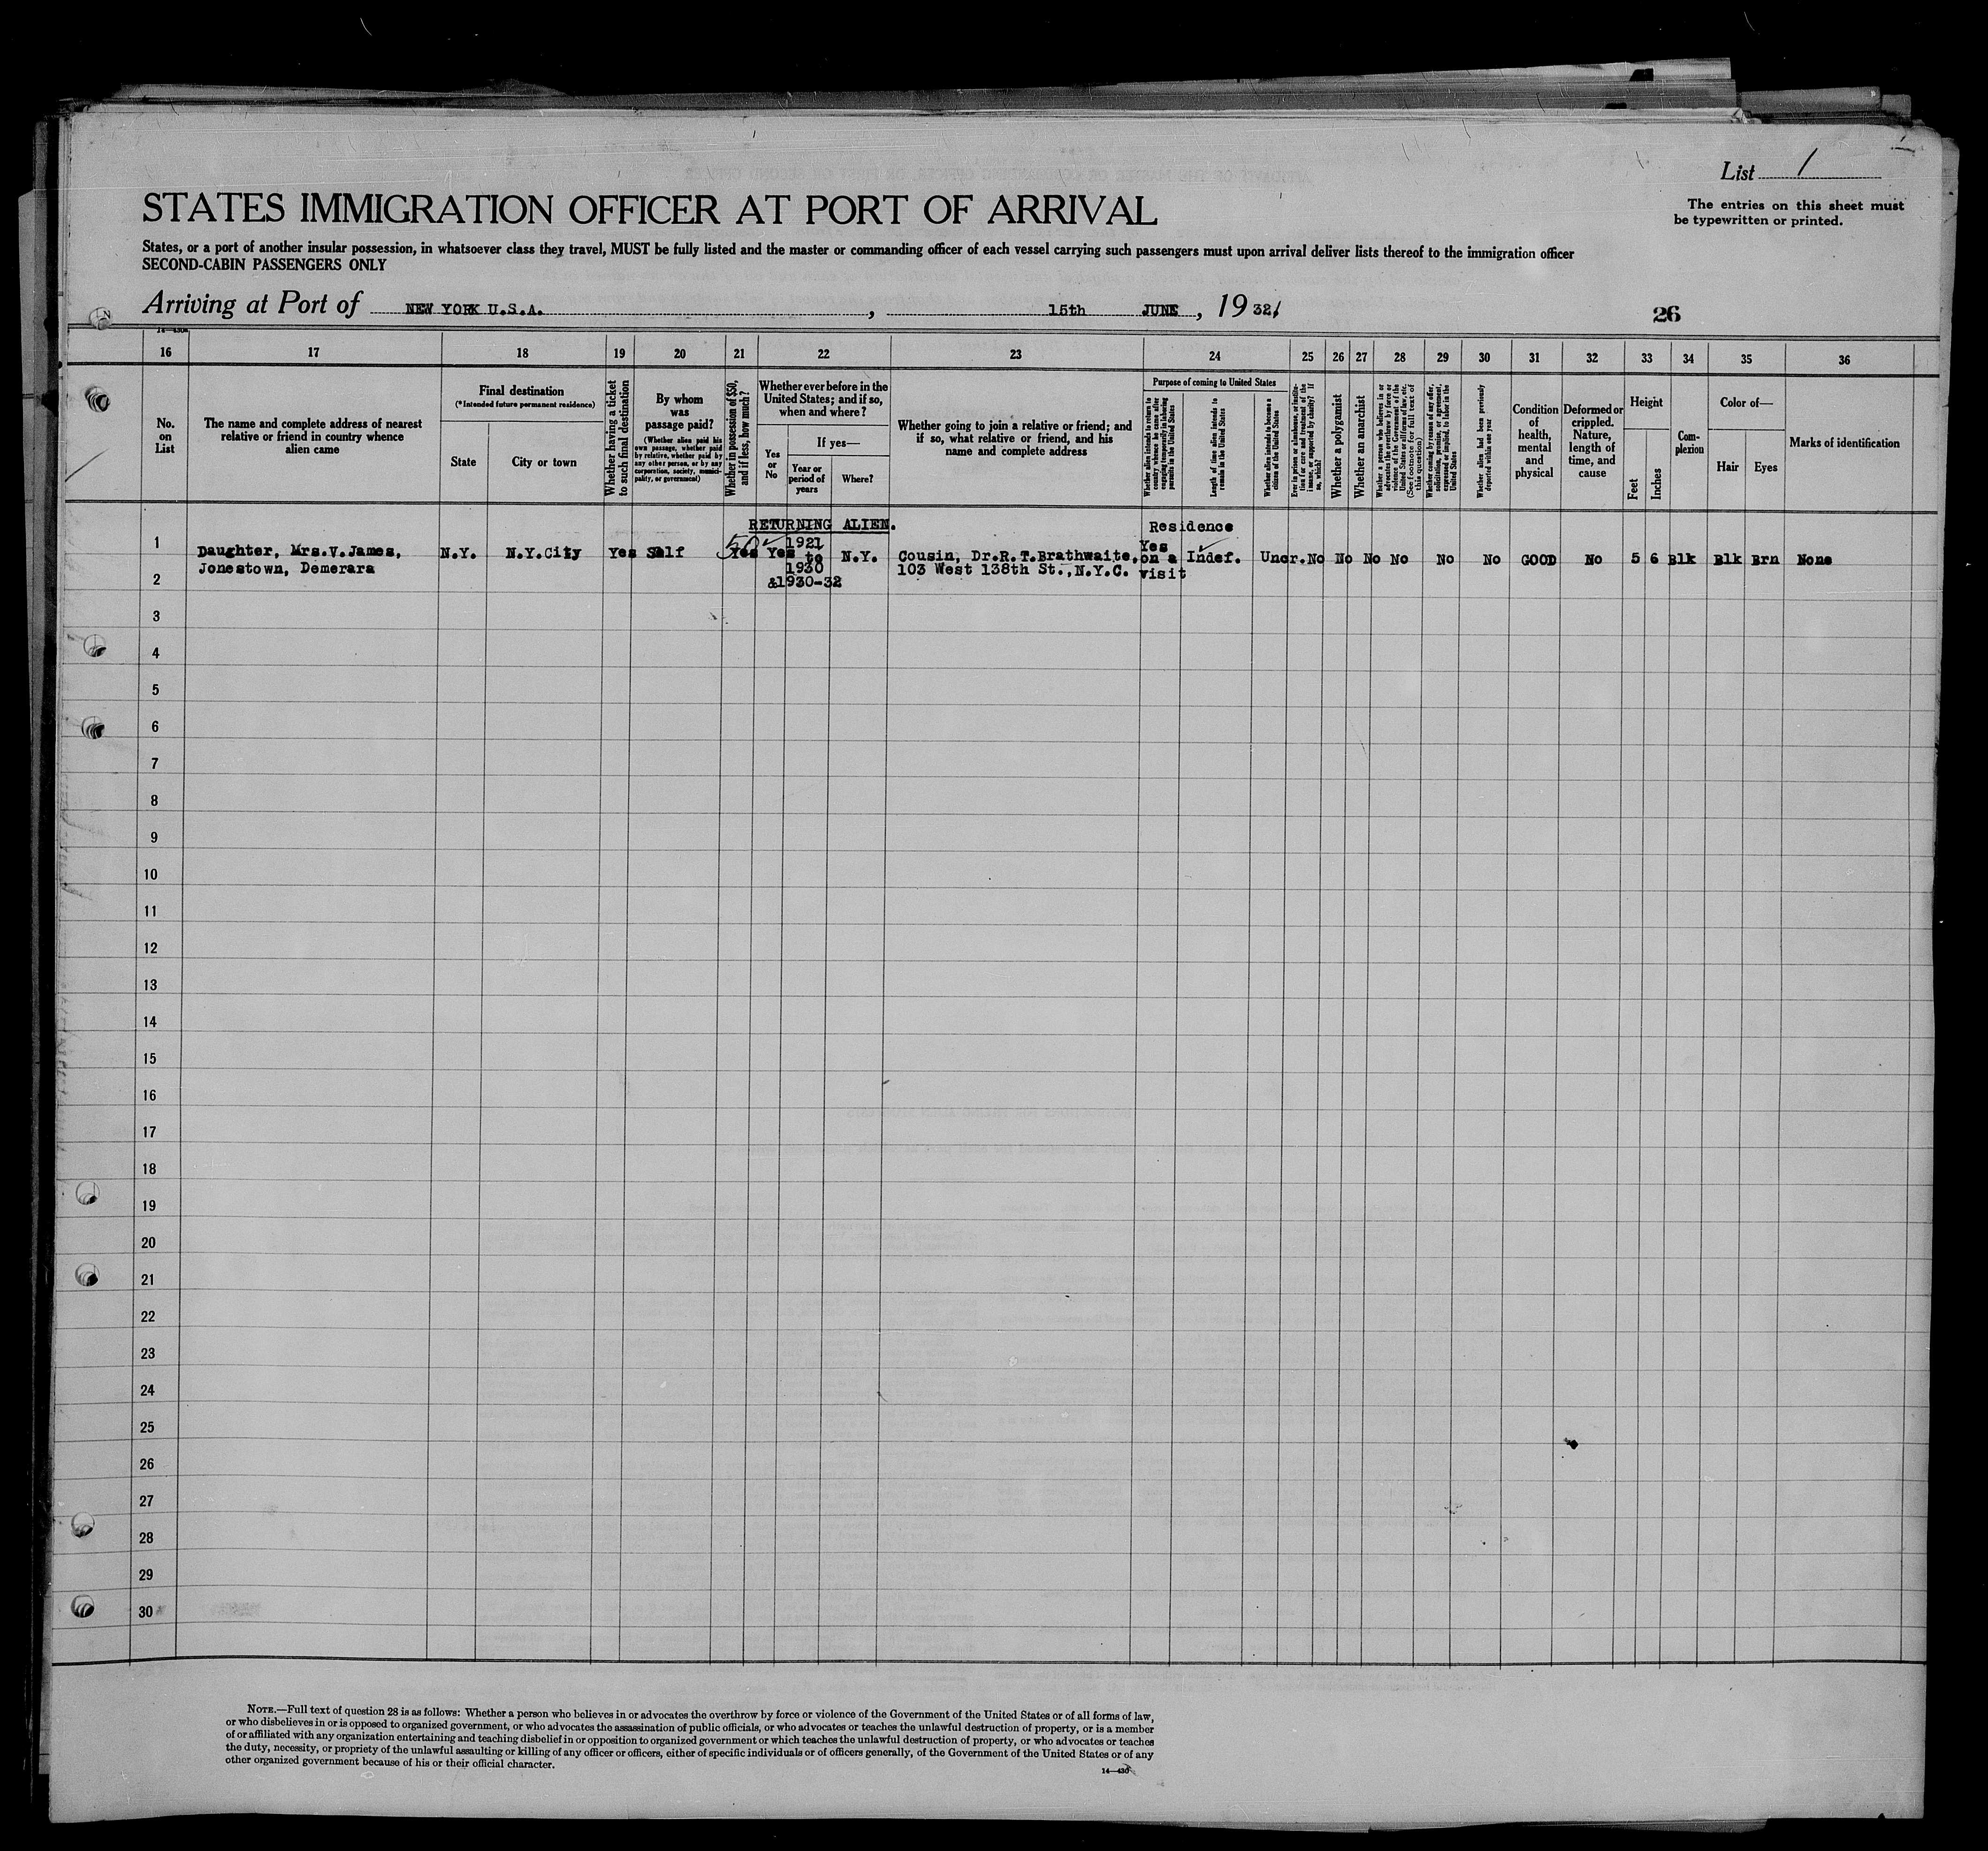 List 1
The entries on this sheet must
be typewritten or printed.
STATES IMMIGRATION OFFICER AT PORT OF ARRIVAL
States, or a port of another insular possession, in whatsoever class they travel, MUST be fully listed and the master or commanding officer of each vessel carrying such passengers must upon arrival deliver lists thereof to the immigration officer
SECOND-CABIN PASSENGERS ONLY
Arriving at Port of NEW YORK U.S.A. , 15th JUNE , 19 32.
26
14—430
16 17 18 19 20 21 22 23 24 25 26 27 28 29 30 31 32 33 34 35 36
No.
on
List
The name and complete address of nearest
relative or friend in country whence
alien came
Final destination
(*Intended future permanent residence)
State
City or town
Whether having a ticket
to such final destination
By whom
was
passage paid?
(Whether alien paid his
own passage, whether paid
by relative, whether paid by
any other person, or by any
corporation, society, munici-
pality, or government)
Whether in possession of $50,
and if less, how much?
Whether ever before in the
United States; and if so,
when and where?
Yes
or
No
If yes—
Year or
period of
years
Where?
Whether going to join a relative or friend; and
if so, what relative or friend, and his
name and complete address
Purpose of coming to United States
Whether alien intends to return to
country whence he came after
engaging temporarily in laboring
pursuits in the United States
Length of time alien intends to
remain in the United States
Whether alien intends to become a
citizen of the United States
Ever in prison or almshouse, or institu-
tion for care and treatment of the
insane, or supported by charity? If
so, which?
Whether a polygamist
Whether an anarchist
Whether a person who believes in or
advocates the overthrow by force or
violence of the Government of the
United States or all forms of law, etc.
(See footnote for full text of
this question)
Whether coming by reason of any offer,
solicitation, promise, or agreement,
expressed or implied, to labor in the
United States
Whether alien had been previously
deported within one year
Condition
of
health,
mental
and
physical
Deformed or
crippled.
Nature,
length of
time, and
cause
Height
Feet
Inches
Com-
plexion
Color of—
Hair
Eyes
Marks of identification
RETURNING ALIEN.
Residence
1 Daughter, Mrs.V.James,
Jonestown, Demerara
N.Y. N.Y.City Yes Self 50 Yes Yes
1921
to
1930
&1930-32
N.Y.
Cousin, Dr.R.T.Brathwaite.
103 West 138th St.,N.Y.C.
Yes
on a
visit
Indef. Uncr. No No No No No No GOOD No 5 6 Blk Blk Brn None
2
3
4
5
6
7
8
9
10
11
12
13
14
15
16
17
18
19
20
21
22
23
24
25
26
27
28
29
30
NOTE.—Full text of question 28 is as follows: Whether a person who believes in or advocates the overthrow by force or violence of the Government of the United States or of all forms of law,
or who disbelieves in or is opposed to organized government, or who advocates the assassination of public officials, or who advocates or teaches the unlawful destruction of property, or is a member
of or affiliated with any organization entertaining and teaching disbelief in or opposition to organized government or which teaches the unlawful destruction of property, or who advocates or teaches
the duty, necessity, or propriety of the unlawful assaulting or killing of any officer or officers, either of specific individuals or of officers generally, of the Government of the United States or of any
other organized government because of his or their official character.
14—430